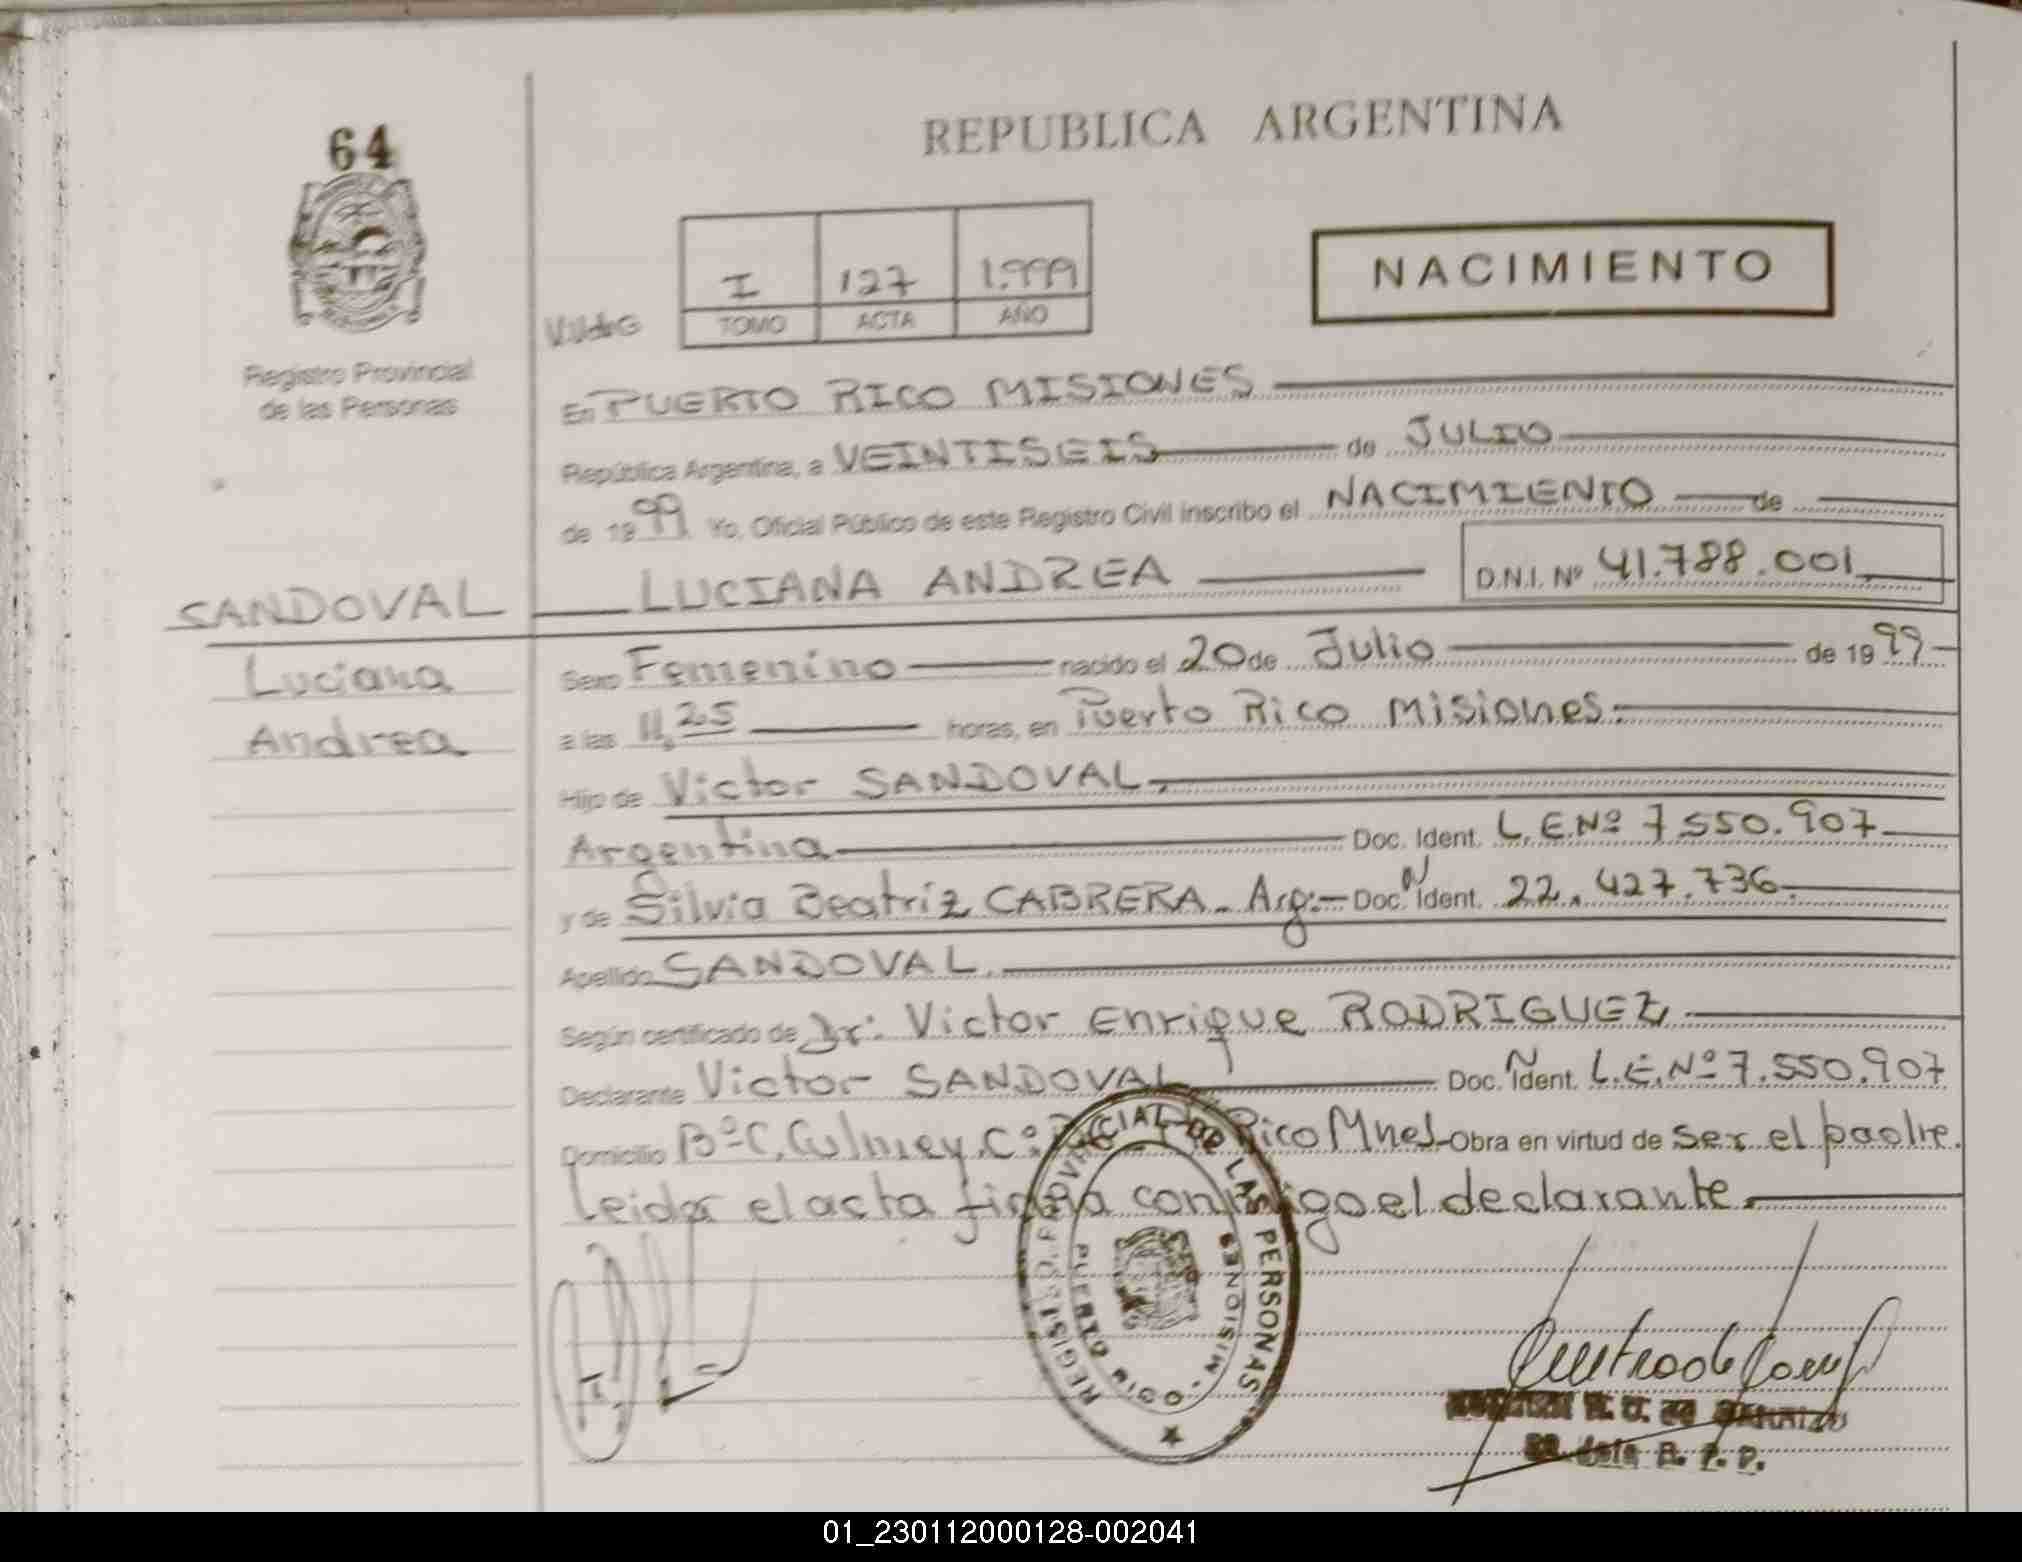 64
REPUBLICA ARGENTINA
NACIMIENTO
I 127 1.999
TOMO ACTA AÑO
Registro Provincial
de las Personas
En PUERTO RICO MISIONES
República Argentina, a VEINTISEIS de JULIO
de 1999 Yo, Oficial Público de este Registro Civil inscribo el NACIMIENTO de
SANDOVAL LUCIANA ANDREA D.N.I. Nº 41.788.001
Luciana
Andrea
Sexo Femenino nacido el 20 de Julio de 1999
a las 11,25 horas, en Puerto Rico Misiones.
Hijo de Victor SANDOVAL
Argentina Doc. Ident. L.E.Nº 7.550.907
y de Silvia Beatriz CABRERA - Arg: Doc. Ident. 22.427.736
Apellido SANDOVAL
Según certificado de Dr: Victor Enrique RODRIGUEZ
Declarante Victor SANDOVAL Doc. Ident. L.E.Nº 7.550.907
Domicilio BºC. Culmey. Cº: Rico Mnes Obra en virtud de ser el padre.
Leida el acta firma conmigo el declarante.
REGIST. PROVINCIAL DE LAS PERSONAS
PUERTO RICO - MISIONES
R. P. P.
01_230112000128-002041